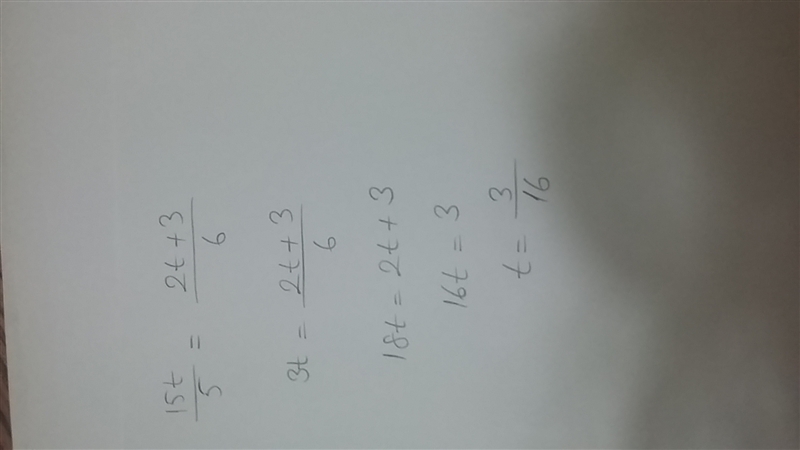 15t/5 = (2t+3)/6
3t = (2t+3)/6
18t = 2t+3
16t = 3
t = 3/16